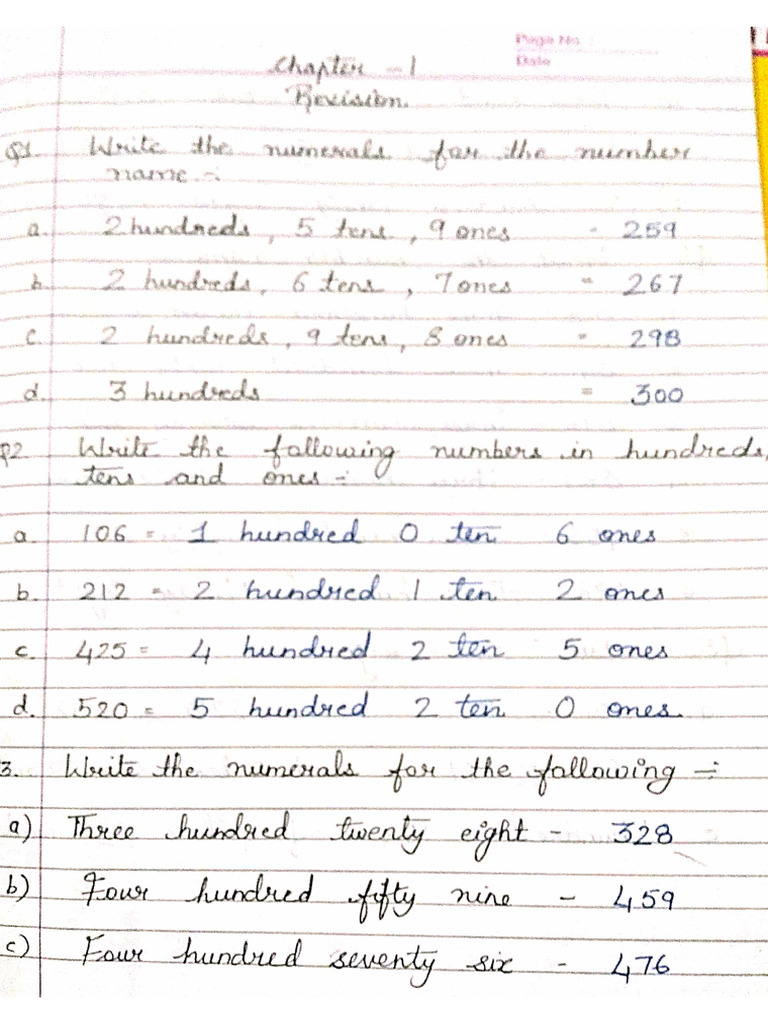 Page No.
Date
Chapter - 1
Revision.
Q1. Write the numerals for the number
name :-
a. 2 hundreds, 5 tens, 9 ones - 259
b. 2 hundreds, 6 tens, 7 ones = 267
c. 2 hundreds, 9 tens, 8 ones = 298
d. 3 hundreds = 300
Q2 Write the following numbers in hundreds,
tens and ones :-
a. 106 = 1 hundred 0 ten 6 ones
b. 212 = 2 hundred 1 ten 2 ones
c. 425 = 4 hundred 2 ten 5 ones
d. 520 = 5 hundred 2 ten 0 ones.
3. Write the numerals for the following :-
a) Three hundred twenty eight - 328
b) Four hundred fifty nine - 459
c) Four hundred seventy six - 476